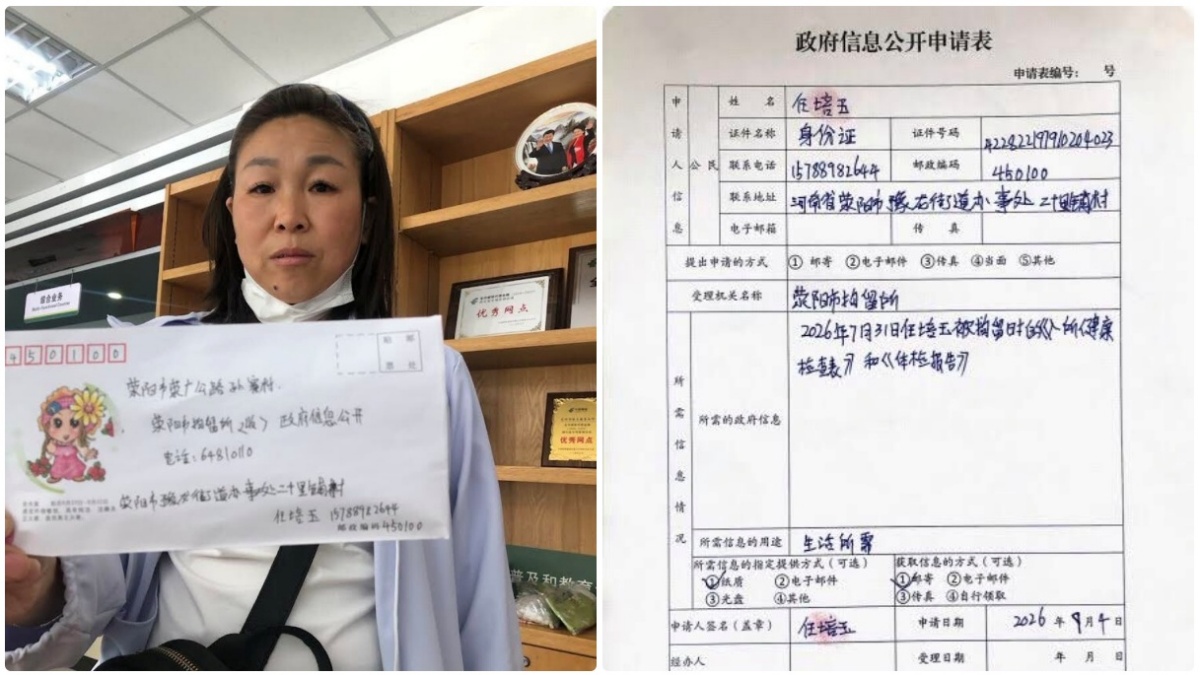 综合业务
优秀网点
优秀网点
普及和教育
450100
贴 邮
票 处
荥阳市荥广公路孙寨村.
荥阳市拘留所(收) 政府信息公开
电话:64810110
荥阳市豫龙街道办事处二十里铺村
任培玉 15788982644
邮政编码450100
政府信息公开申请表
申请表编号: 号
申请人信息
公民
姓 名 任培玉
证件名称 身份证 证件号码 422822197910204023
联系电话 15788982644 邮政编码 450100
联系地址 河南省荥阳市豫龙街道办事处二十里铺村
电子邮箱 传 真
提出申请的方式 ①邮寄 ②电子邮件 ③传真 ④当面 ⑤其他
受理机关名称 荥阳市拘留所
所需信息情况
所需的政府信息
2026年7月31日任培玉被拘留时的《入所健康
检查表》和《体检报告》
所需信息的用途 生活所需
所需信息的指定提供方式(可选) 获取信息的方式(可选)
①纸质 ②电子邮件 ①邮寄 ②电子邮件
③光盘 ④其他 ③传真 ④自行领取
申请人签名(盖章) 任培玉 申请日期 2026 年 9 月 4 日
经办人 受理日期 年 月 日